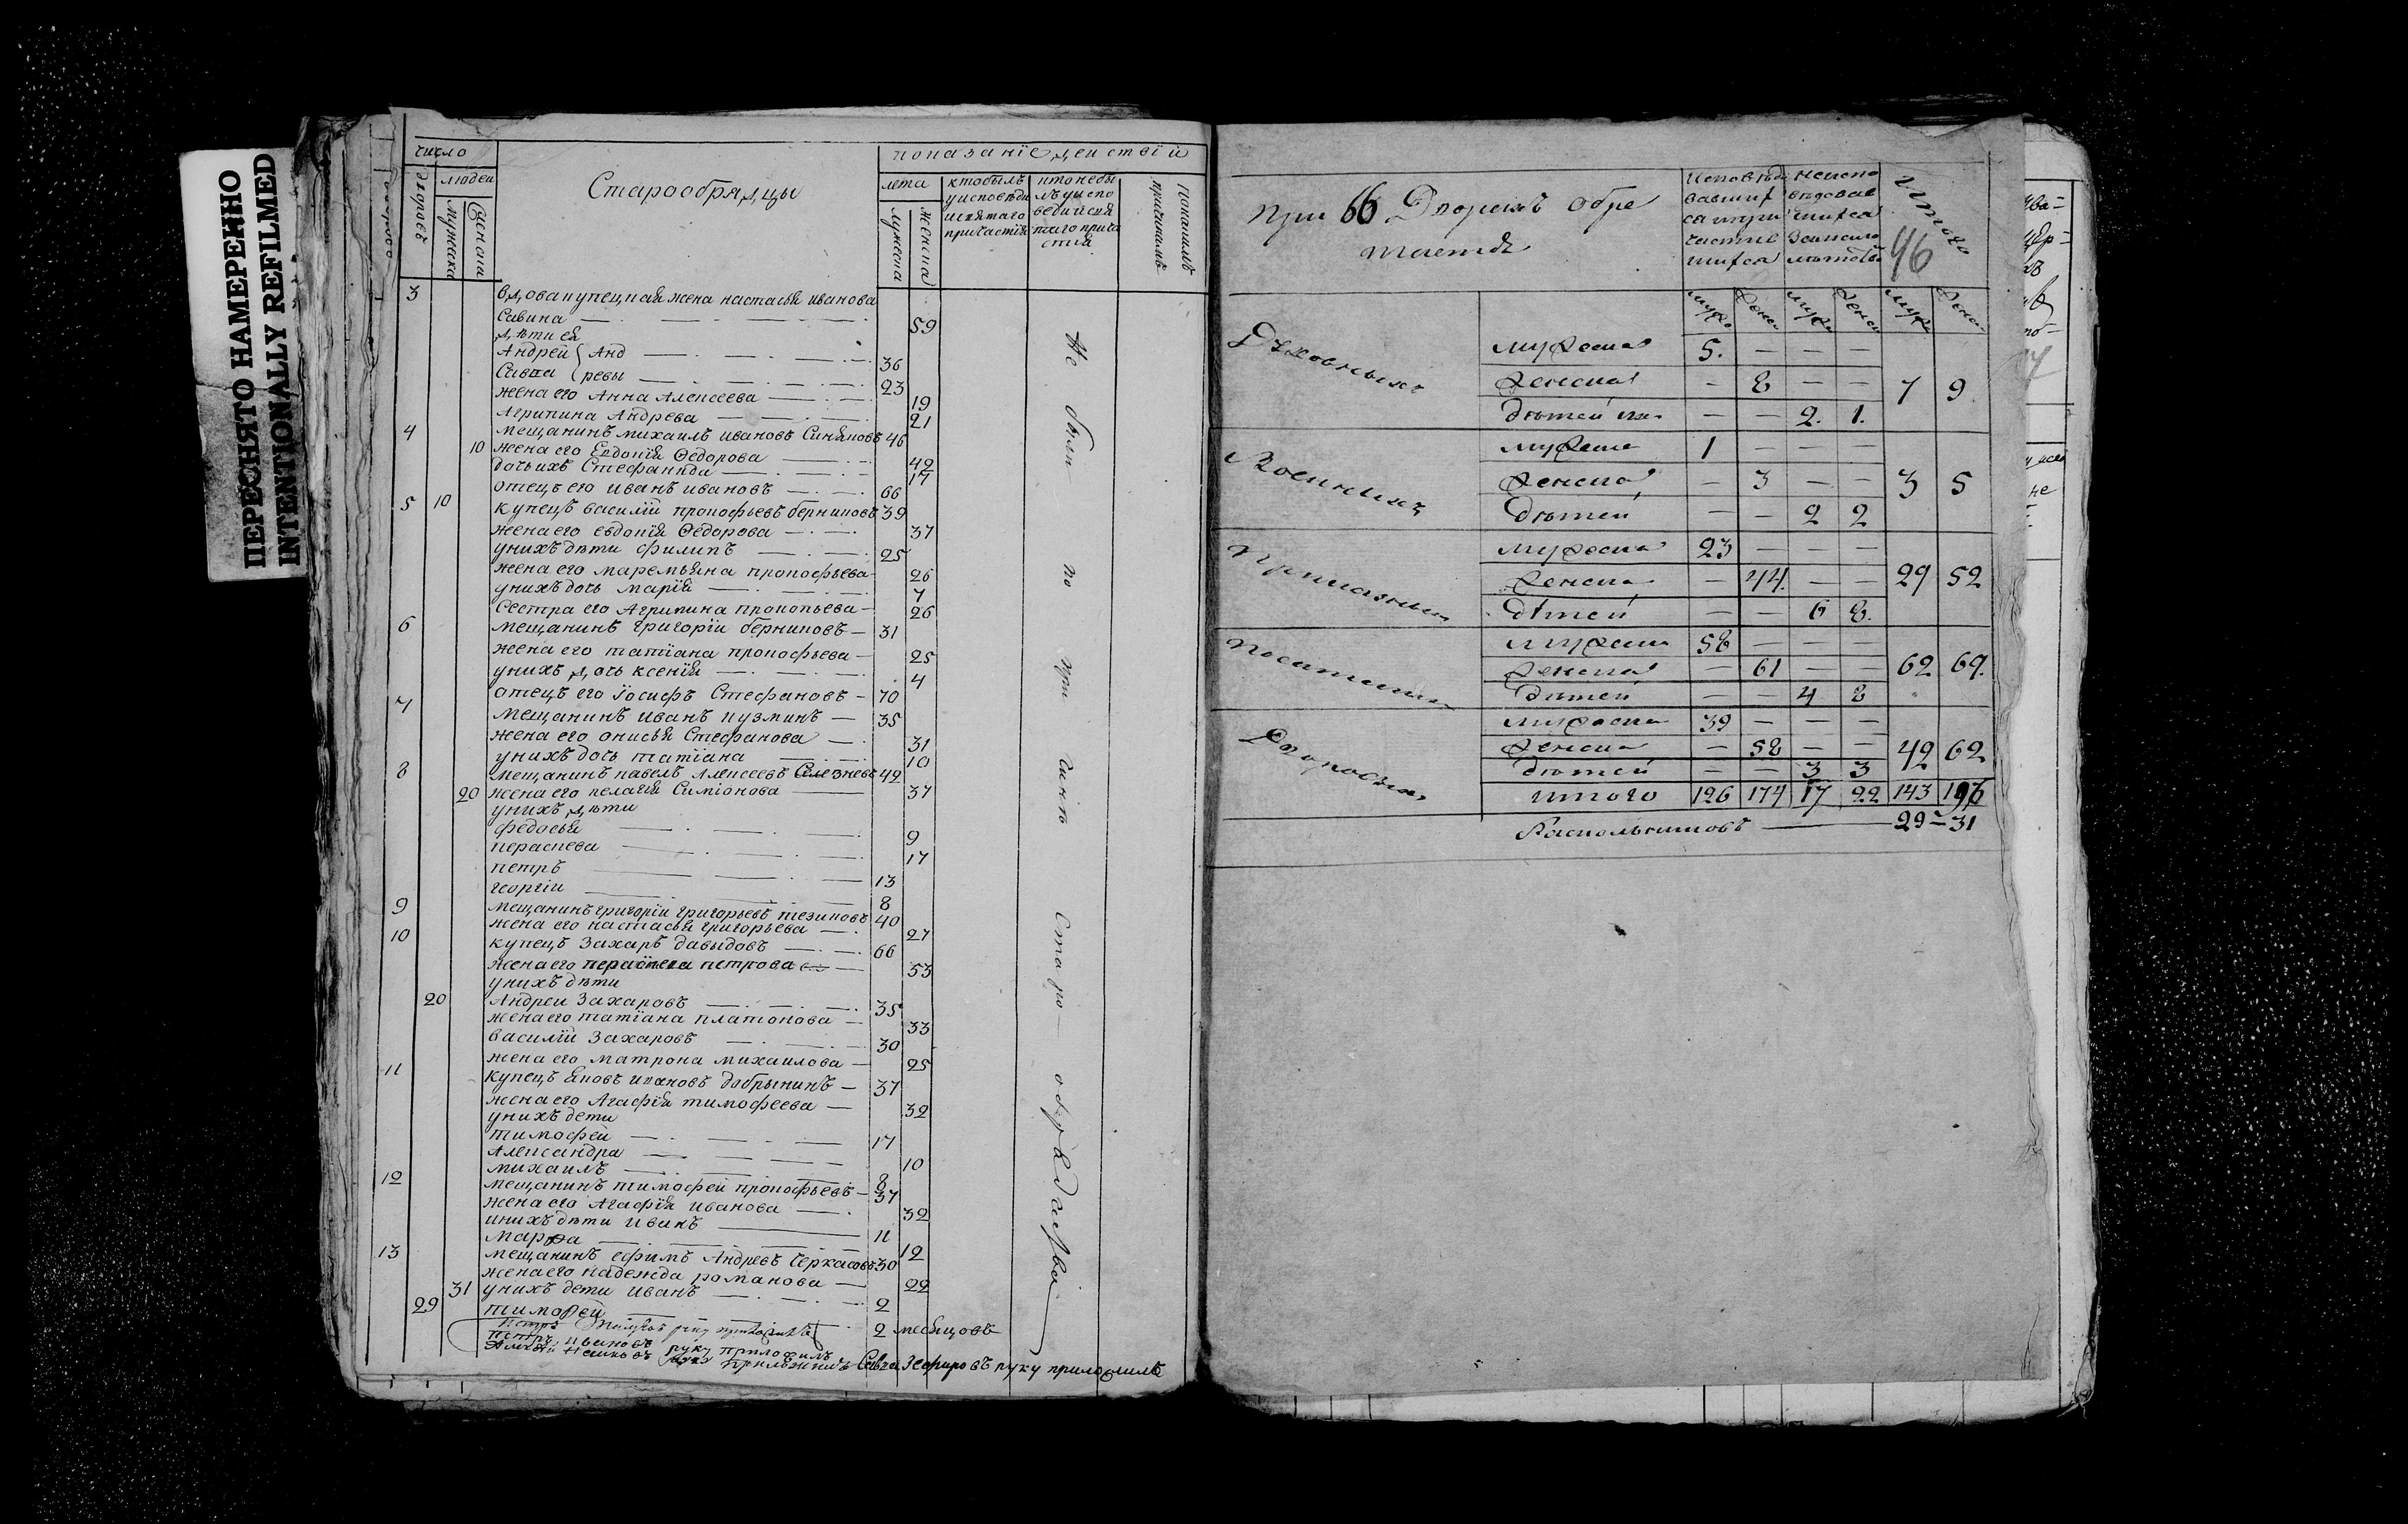 ПЕРЕСНЯТО НАМЕРЕННО
INTENTIONALLY REFILMED
число
показание действий
дворовъ
людей
мужеска
женска
Старообрядцы
лета
мужеска
женска
кто былъ у исповеди и святаго причастия
кто не былъ у исповеди и святаго причастия
3 вдова купецкая жена настасья иванова
Савина 59
дѣти ея
Андрей Анд 36
Савва ревы 23
жена его Анна Алексеева 19
Агрипина Андрева 21
4 мещанинъ михаилъ ивановъ Синяковъ 46
10 жена его Евдокiя Ѳедорова 42
дочь ихъ Стефанида 17
отецъ его иванъ ивановъ 66
5 10 купецъ василiй прокофьевъ берниковъ 39
жена его евдокiя Ѳедорова 37
у нихъ дѣти филипъ 25
жена его маремьяна прокофьева 26
у нихъ дочь марiя 7
Сестра его Агрипина прокопьева 26
6 мещанинъ григорiи берниковъ 31
жена его татiана прокофьева 25
у нихъ дочь ксенiя 4
отецъ его Iосифъ Стефановъ 70
7 мещанинъ иванъ кузминъ 35
жена его онисья Стефанова 31
у нихъ дочь татiана 10
8 мещанинъ павелъ Алексеевъ Селезневъ 42
20 жена его пелагiя Симiонова 37
у нихъ дѣти
федосья 9
параскева 17
петръ 13
георгiи 8
9 мещанинъ григорiи григорьевъ 40
жена его настасья григорьева 27
10 купецъ Захаръ давыдовъ 66
жена его петрова 53
у нихъ дѣти
20 Андреи Захаровъ 35
жена его татiана платонова 33
василiи Захаровъ 30
жена его матрона михаилова 25
11 купецъ яковъ ивановъ добрынинъ 37
жена его Агафiя тимофеева 32
у нихъ дети
тимофеи 17
Александра 10
михаилъ 8
12 мещанинъ тимофеи прокофьевъ 37
жена его Агафiя иванова 32
у нихъ дѣти иванъ 11
марѳа 12
13 мещанинъ ефимъ Андревъ Черкасовъ 30
жена его надежда романова 22
31 у нихъ дети иванъ 2
29 тимофей 2 месяцовъ
Не были по причинѣ Старо-обрядчества
петръ ивановъ руку приложилъ
руку приложилъ Савва Зефировъ руку приложилъ
При 66 Дворехъ обре
таетдя
Исповѣдавшихся и причастившихся
Неисповѣдовавшихся
Итого
46
мужес женск мужес женск мужес женск
Духовныхъ
мужеска 5. — — —
женска — 8 — — 7 9
дѣтей их — — 2. 1.
Военныхъ
мужеска 1 — — —
женска — 3 — — 3 5
Дѣтей — — 2 2
Приказных
мужеска 23 — — —
женска — 44. — — 29 52
Дѣтей — — 6 8.
Посатских
мужеска 58 — — —
женска — 61 — — 62 69.
Дѣтей — — 4 8
Дворовых
мужеска 39 — — —
женска — 58 — — 42 62
дѣтей — — 3 3
итого 126 174 17 22 143 196
Раскольниковъ — 29 — 31